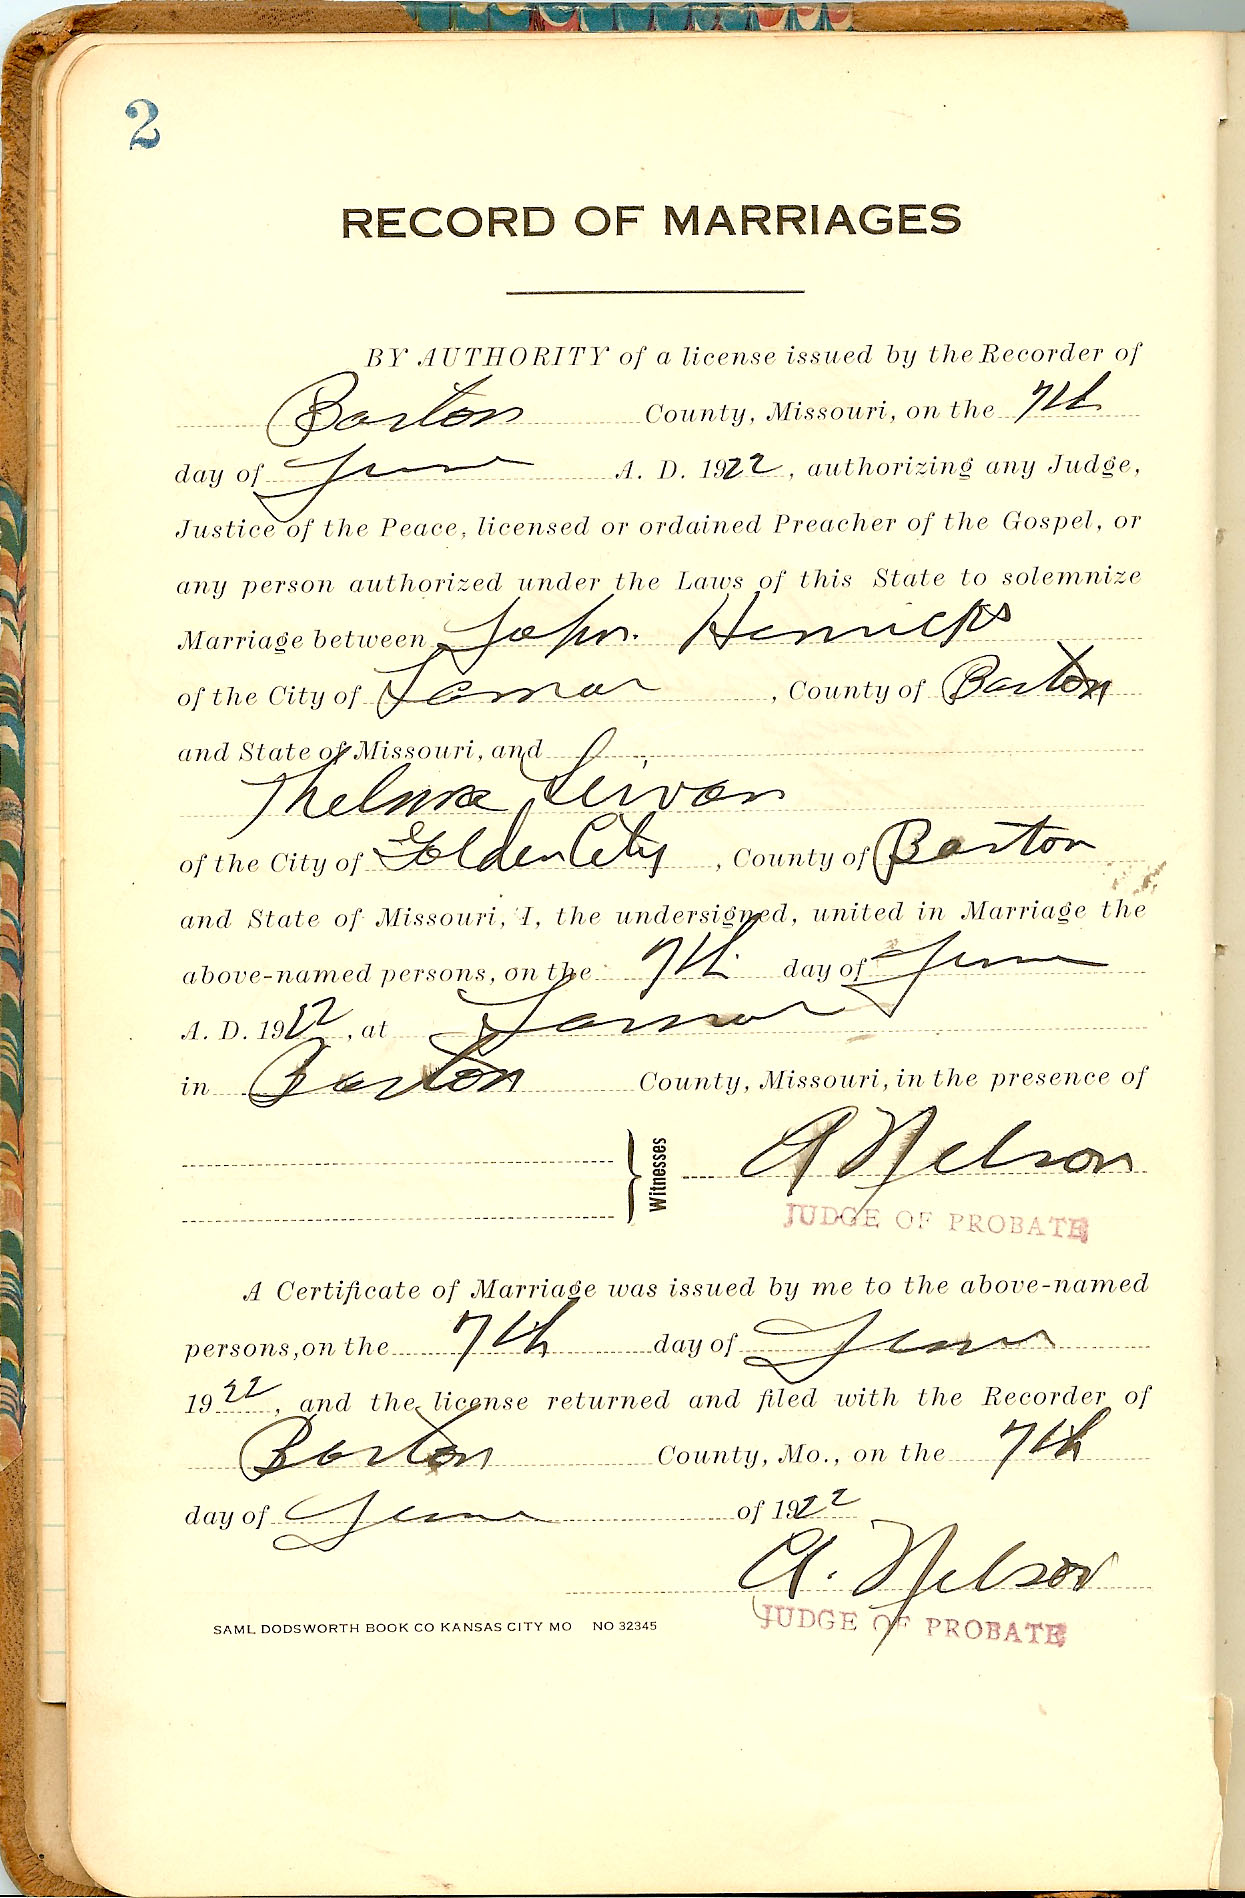 2
RECORD OF MARRIAGES
BY AUTHORITY of a license issued by the Recorder of
Barton County, Missouri, on the 7th
day of June A. D. 1922, authorizing any Judge,
Justice of the Peace, licensed or ordained Preacher of the Gospel, or
any person authorized under the Laws of this State to solemnize
Marriage between John Henricks
of the City of Lamar, County of Barton
and State of Missouri, and
Thelma
of the City of Golden City, County of Barton
and State of Missouri, I, the undersigned, united in Marriage the
above-named persons, on the 7th day of June
A. D. 1922, at Lamar
in Barton County, Missouri, in the presence of
Witnesses A Nelson
JUDGE OF PROBATE
A Certificate of Marriage was issued by me to the above-named
persons, on the 7th day of June
1922, and the license returned and filed with the Recorder of
Barton County, Mo., on the 7th
day of June of 1922
A. Nelson
JUDGE OF PROBATE
SAML DODSWORTH BOOK CO KANSAS CITY MO NO 32345